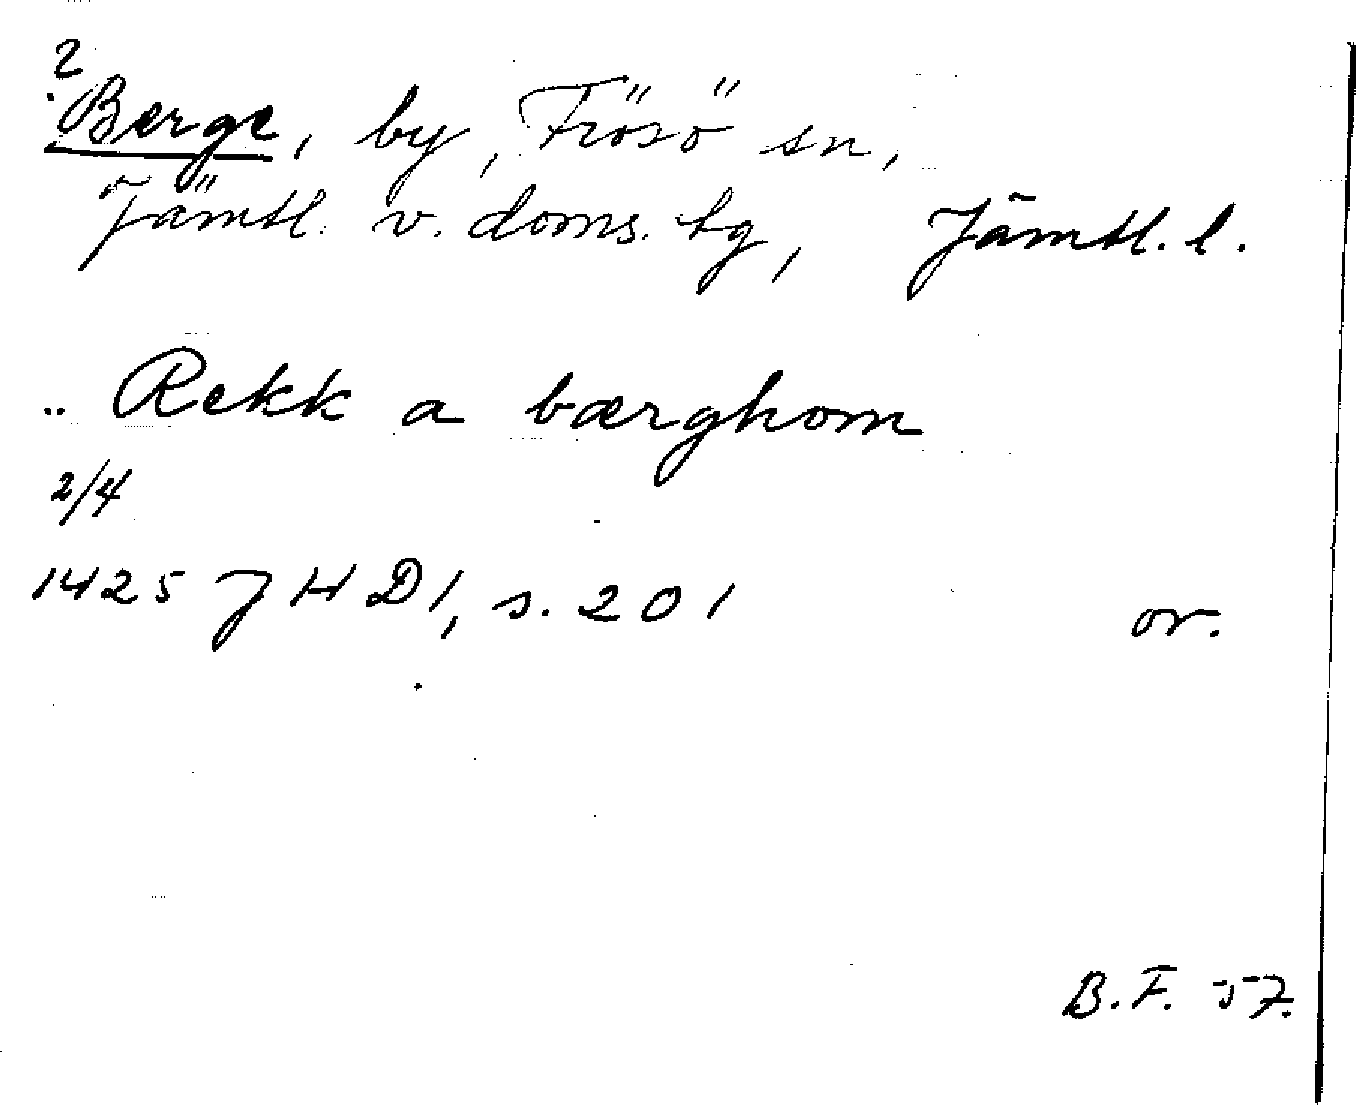 ?
Berge, by, Frösö sn,
Jämtl. v. doms. tg, Jämtl. l.
.. Rekk a bærghom
2/4
1425 JHD 1, s. 201 or.
B.F. 57.